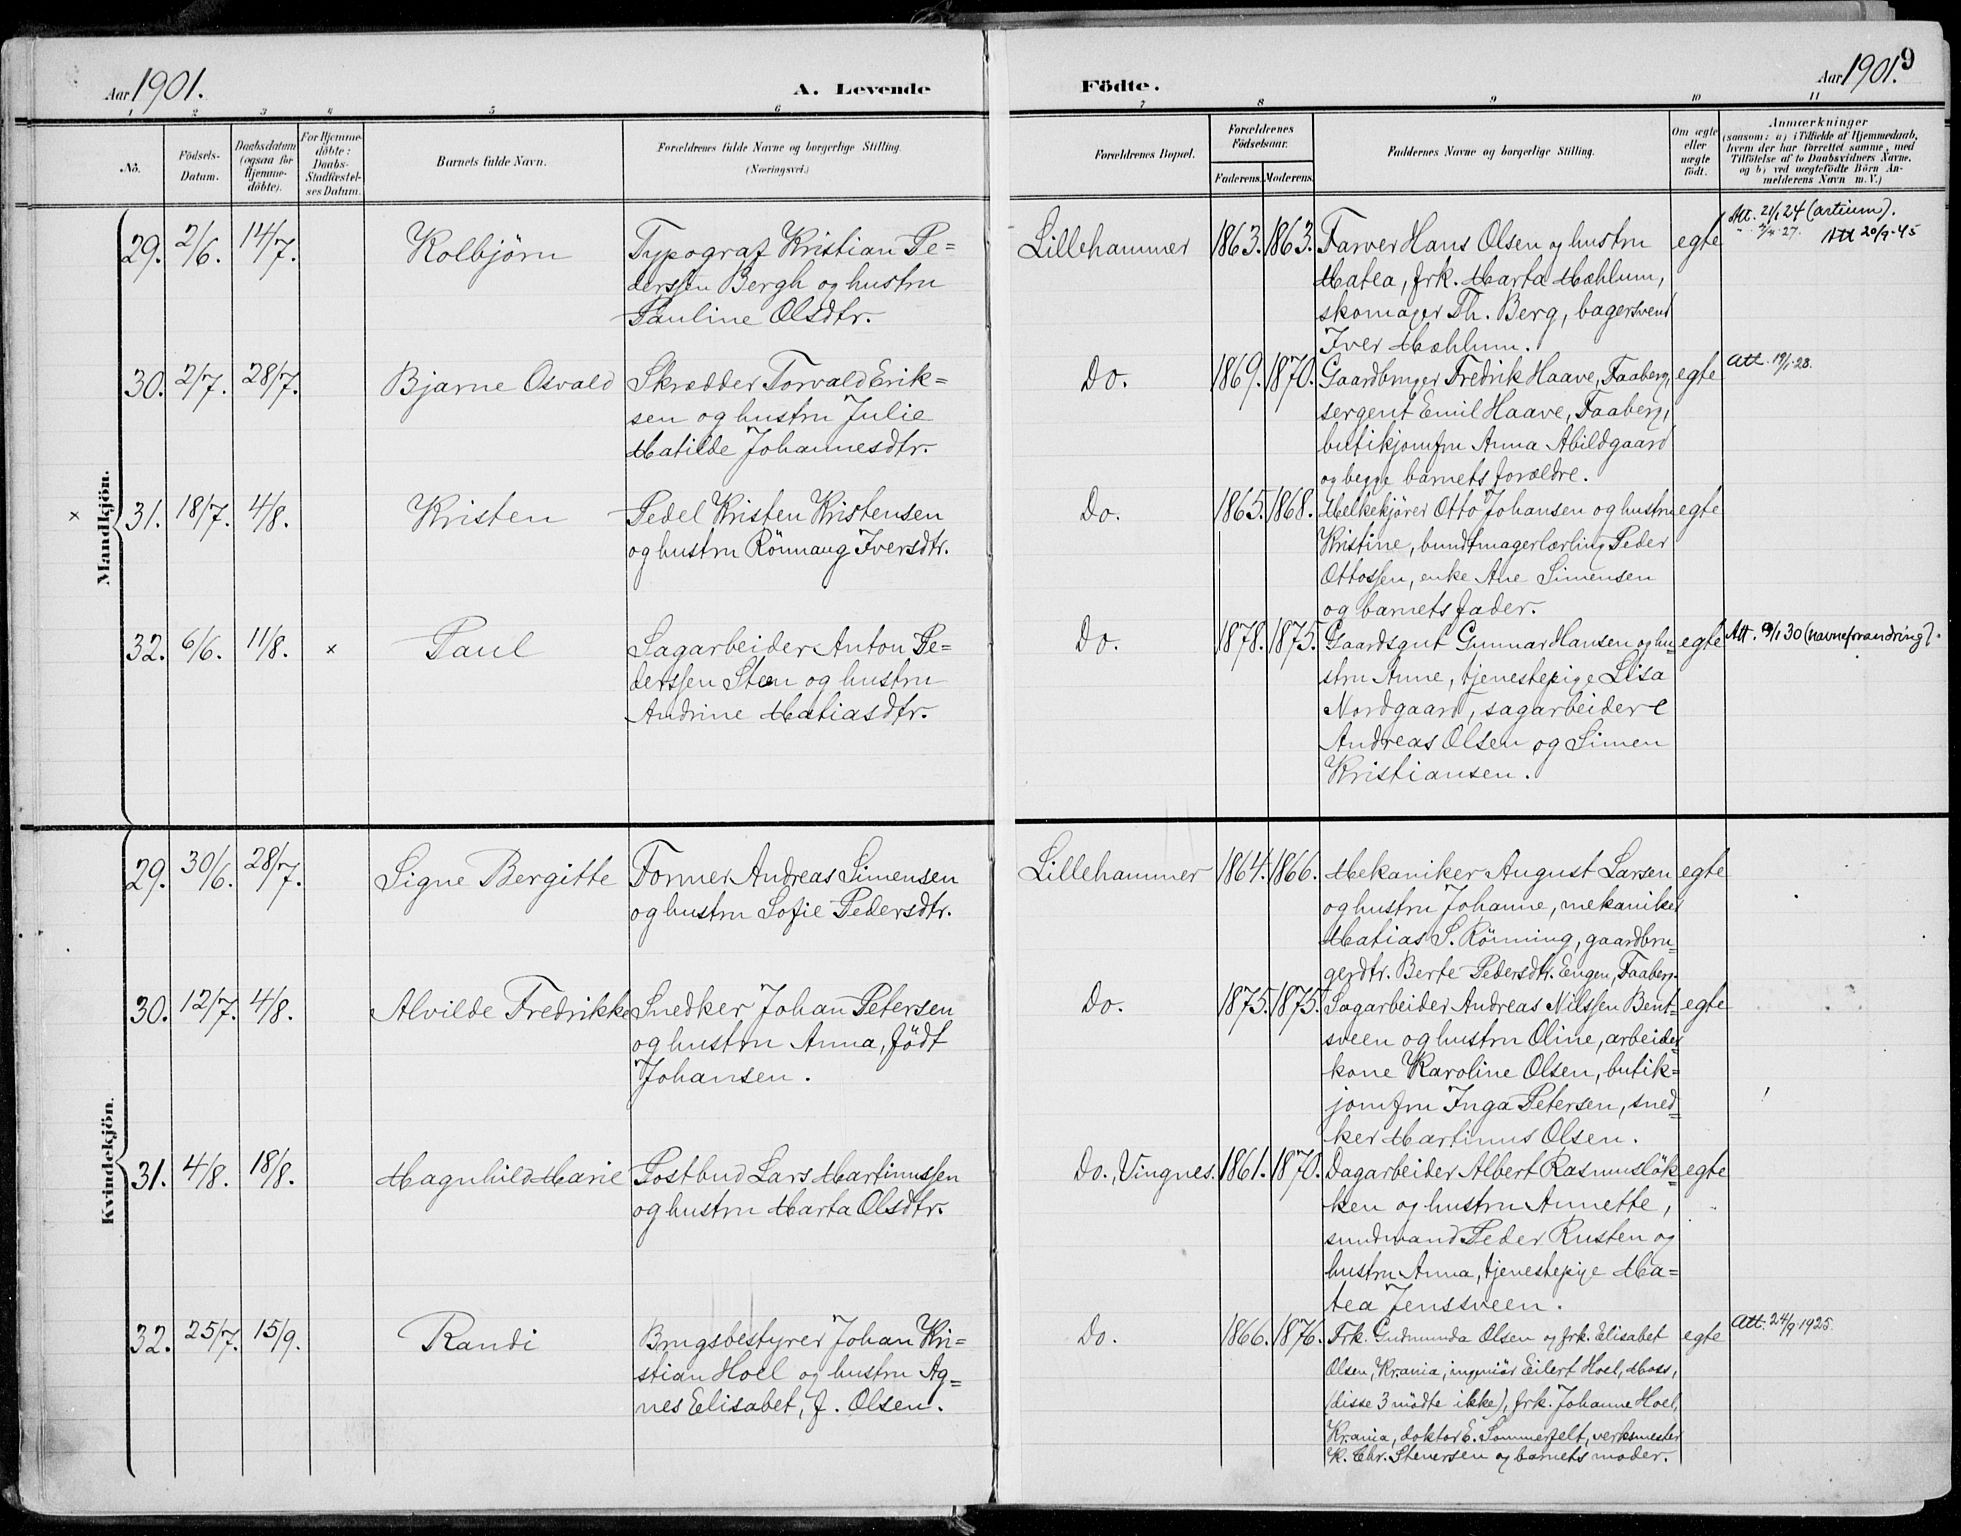 Aar 1901.
A. Levende
Födte.
Aar 1901.
9
1 2 3 4 5 6 7 8 9 10 11
No.
Födsels-
Datum.
Daabsdatum
(ogsaa for
Hjemme-
döbte).
For Hjemme-
döbte:
Daabs-
Stadfæstel-
ses Datum.
Barnets fulde Navn.
Forældrenes fulde Navne og borgerlige Stilling.
(Næringsvei.)
Forældrenes Bopæl.
Forældrenes
Födselsaar.
Faderens. Moderens.
Faddernes Navne og borgerlige Stilling.
Om ægte
eller
uægte
födt.
Anmærkninger
(saasom: a) i Tilfælde af Hjemmedaab,
hvem der har forrettet samme, med
Tilföielse af to Daabsvidners Navne,
og b) ved uægtefödte Börn An-
melderens Navn m. V.)
Mandkjön.
29. 2/6. 14/7.
Kolbjörn
Typograf Kristian Pe=
derssen Bergh og hustru
Pauline Olsdtr.
Lillehammer
1863. 1863.
Farver Hans Olsen og hustru
Matea, frk. Marta Mæhlum,
skomager Th. Berg, bagersvend
Iver Mæhlum.
egte
Att. 21/1 24 (artium).
Att 20/9-45
30. 2/7. 28/7.
Bjarne Osvald
Skrædder Torvald Erik=
sen og hustru Julie
Matilde Johannesdtr.
Do.
1869. 1870.
Gaardbruger Fredrik Haave, Faaberg,
sergent Emil Haave, Faaberg,
butikjomfru Anna Abildgaard
og begge barnets forældre.
egte
Att. 19/1-23.
×
31. 18/7. 4/8.
Kristen
Pedel Kristen Kristensen
og hustru Rönnaug Iversdtr.
Do.
1865. 1868.
Melkekjörer Otto Johansen og hustru
Kristine, bundtmagerlærling Peder
Ottossen, enke Ane Simensen
og barnets fader.
egte
32. 6/6. 11/8. ×
Paul
Sagarbeider Anton Pe=
derssen Steen og hustru
Andrine Matiasdtr.
Do.
1878. 1875.
Gaardsgut Gunnar Hansen og hu=
stru Anne, tjenestepige Lisa
Nordgaard, sagarbeidere
Andreas Olsen og Simen
Kristiansen.
egte
Att. 9/1 30 (navneforandring).
Kvindekjön.
29. 30/6. 28/7.
Signe Bergitte
Former Andreas Simensen
og hustru Sofie Pedersdtr.
Lillehammer
1864. 1866.
Mekaniker August Larsen
og hustru Johanne, mekaniker
Matias S. Rönning, gaardbru=
gerdtr. Berte Pedersdtr. Engen, Faaberg.
egte
30. 12/7. 4/8.
Alvilde Fredrikke
Snedker Johan Petersen
og hustru Anna, födt
Johansen.
Do.
1875. 1875.
Sagarbeider Andreas Nilssen Bent=
sveen og hustru Oline, arbeider
kone Karoline Olsen, butik=
jomfru Inga Petersen, sned=
ker Martinus Olsen.
egte
31. 4/8. 18/8.
Magnhild Marie
Postbud Lars Martinussen
og hustru Marta Olsdtr.
Do., Vingnes.
1861. 1870.
Dagarbeider Albert Rasmuslök=
ken og hustru Annette,
sundmand Peder Rusten og
hustru Anna, tjenestepige Ma=
tea Jenssveen.
egte
32. 25/7. 15/9.
Randi
Brugsbestyrer Johan Kri=
stian Hoel og hustru Ag=
nes Elisabet, f. Olsen.
Do.
1866. 1876.
Frk. Gudmunda Olsen og frk. Elisabet
Olsen, Kr.ania, ingeniör Eilert Hoel, Moss,
(disse 3 mödte ikke), frk. Johanne Hoel,
Kr.ania, doktor E. Sommerfelt, verksmester
K. Chr. Stenersen og barnets moder.
egte
Att. 24/9 1925.